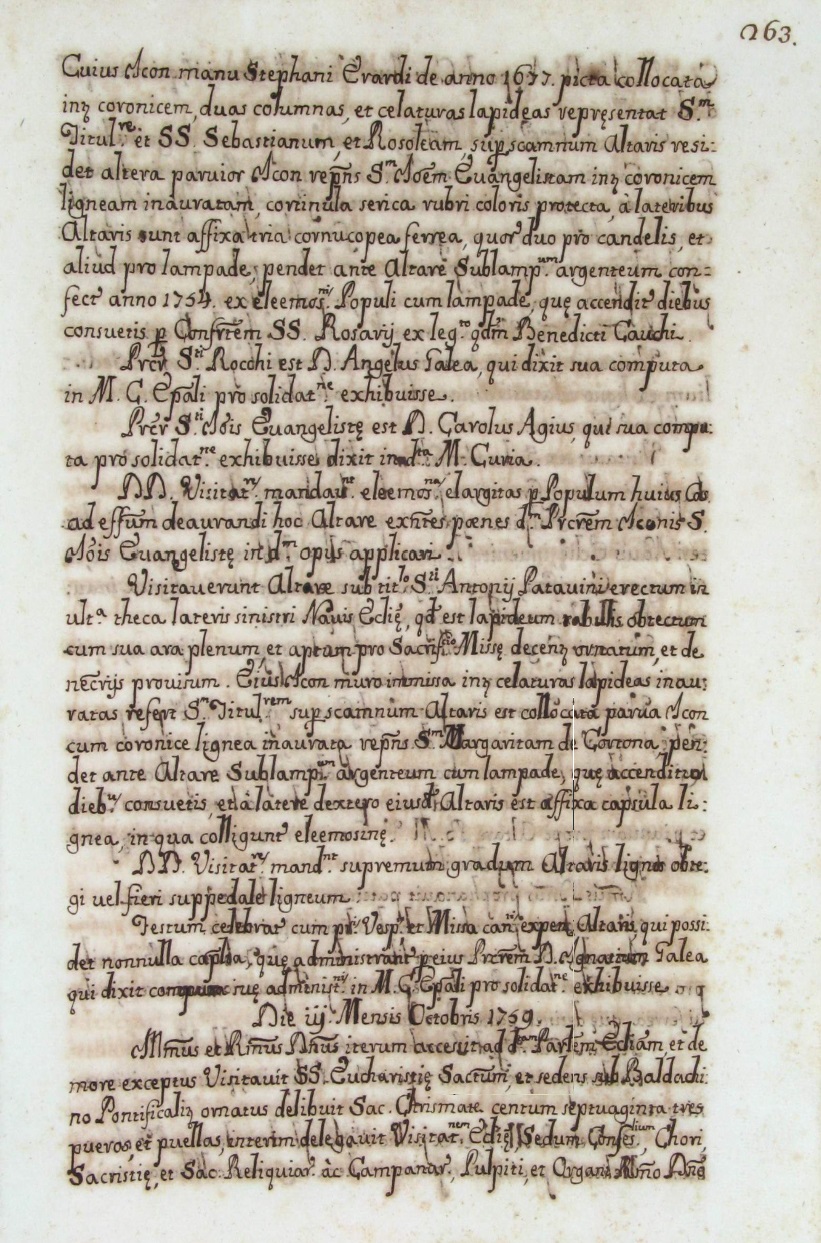 263.
Cuius Icon manu Stephani Erardi de anno 1677. picta collocata
inƺ coronicem, duas columnas, et celaturas lapideas repręsentat S.m
Titul.re et SS. Sebastianum, et Rosoleam, sup scamnum Altaris resi:
det altera paruior Icon repñs S.m Ioẽm Euangelistam inƺ coronicem
ligneam inauratam, cortinula serica rubri coloris protecta, à lateribus
Altaris sunt affixa tria cornucopea ferrea, quor' duo pro candelis, et
aliud pro lampade, pendet ante Altare Sublamp.um argenteum con-
fect' anno 1754. ex eleemos.nis Populi cum lampade, quę accendit' diebus
consuetis p Confrtẽm SS. Rosarij ex leg.to qdm Benedicti Cauchi.
Prcr S.ti Rocchi est D. Angelus Galea, qui dixit sua computa
in M. C. Epali pro solidat.ne exhibuisse.
Prcr S.ti Iõis Euangelistę est D. Carolus Agius, qui sua compu:
ta pro solidat.ne exhibuisse dixit in dta M. Curia.
DD. Visitat.es mandau.nt eleemos.nas elargitas p Populum huius
ad effũm deaurandi hoc Altare exñtes pœnes d.m Prcrẽm Iconis S.
Iõis Euangelistę in d.m opus applicari.
Visitauerunt Altare sub tit.lo S.ti Antonij Patauini erectum in
ult.a theca lateris sinistri Nauis Eclię, qd est lapideum tabulis obtectum
cum sua ara plenum, et aptum pro Sacrif.cio Missę decenƺ ornatum, et de
necrijs prouisum. Eius Icon muro immissa inƺ celaturas lapideas inau:
ratas refert S.m Titul.rem sup scamnum Altaris est collocata parua Icon
cum coronice lignea inaurata repñs S.m Margaritam de Cortona, pen:
det ante Altare Sublamp.um argenteum cum lampade, quę accenditur
dieb.s consuetis, et à latere dextero eiusd. Altaris est affixa capsula li:
gnea, in qua colligunt' eleemosinę.
DD. Visitat.es mand.nt supremum gradum Altaris ligno obte:
gi uel fieri suppedale ligneum
Festum celebrat' cum pr. Vesp. et Missa can. expen. Altaris, qui possi:
det nonnulla caplia, quę administrant' p eius Prcrẽm D. Ignatium Galea
qui dixit computa suę administ.nis in M. C. Epali pro solidat.ne exhibuisse
Die iij Mensis Octobris 1759.
Illmus et Rmus Dñus iterum accessit ad d.am Parlem Ecliam, et de
more exceptus Visitauit SS. Eucharistię Sactum, et sedens sub Baldachi:
no Pontificaliƺ ornatus delibuit Sac. Chrismate centum septuaginta tres
pueros, et puellas, interim delegauit Visitat.nem Eclię, Sedum Confes.lium Chori,
Sacristię, et Sac. Reliquiar' àc Campanar', Pulpiti, et Organi Illmo Dño